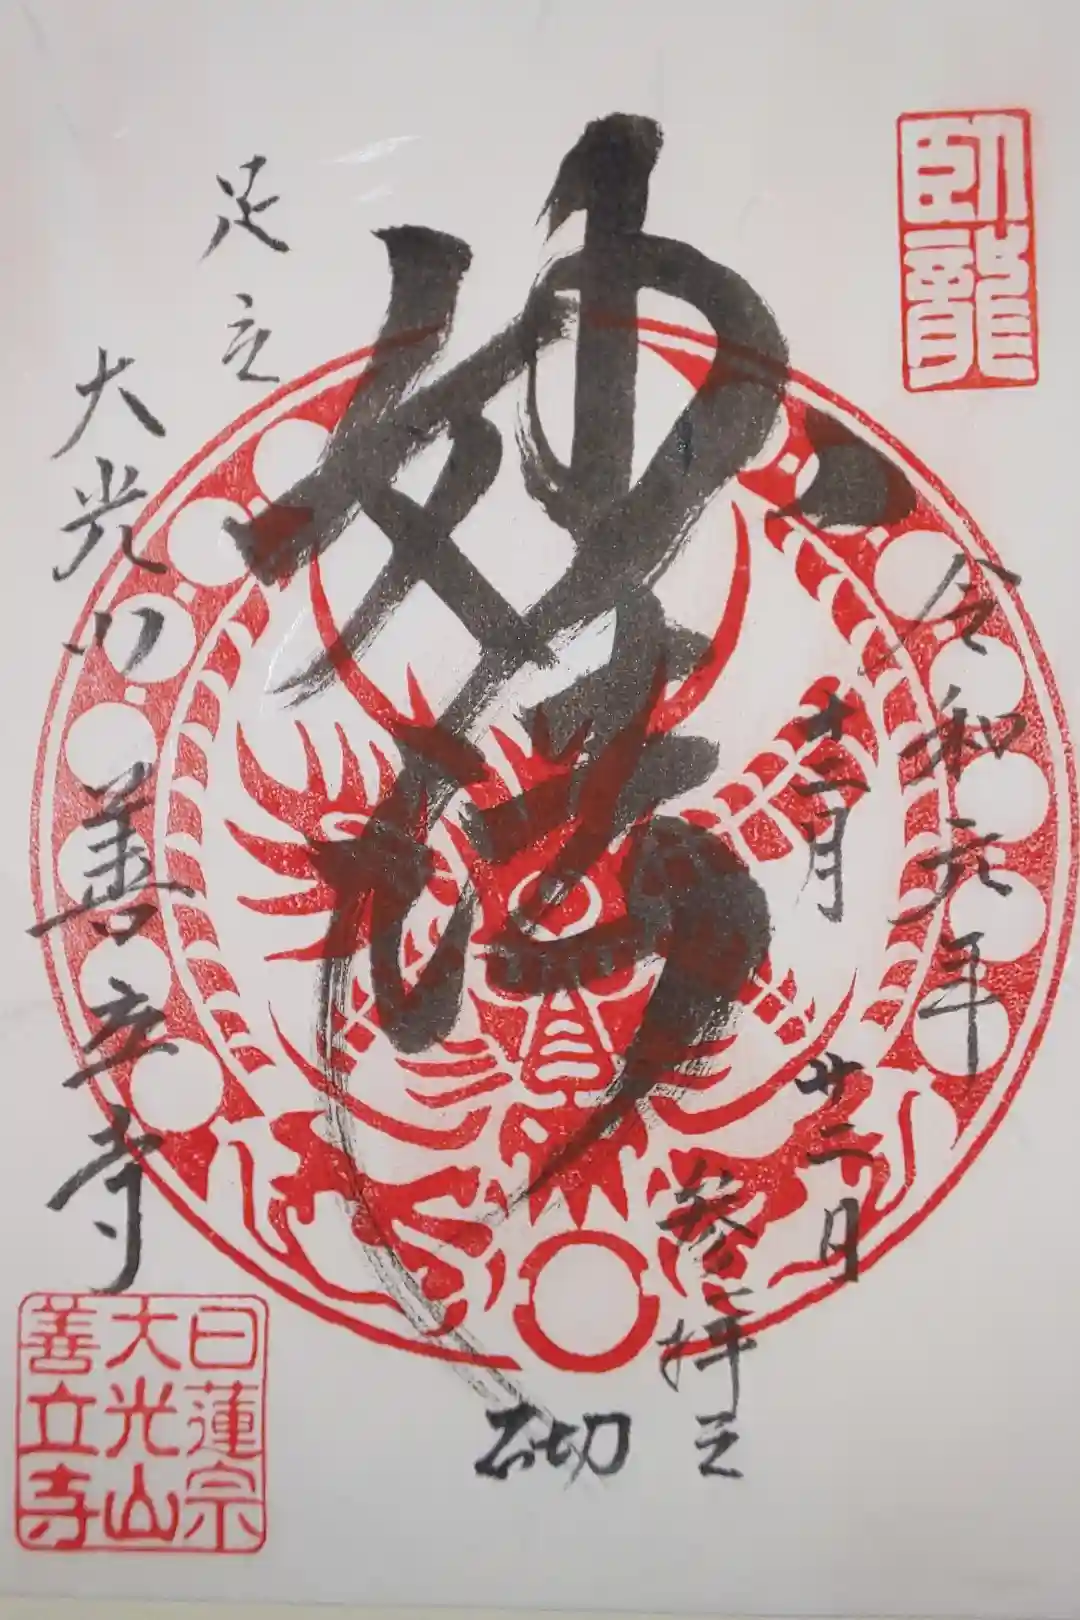 臥龍
令和元年
十二月廿二日
参拝之
砌
妙法
足立
大光山
善立寺
日蓮宗
大光山
善立寺